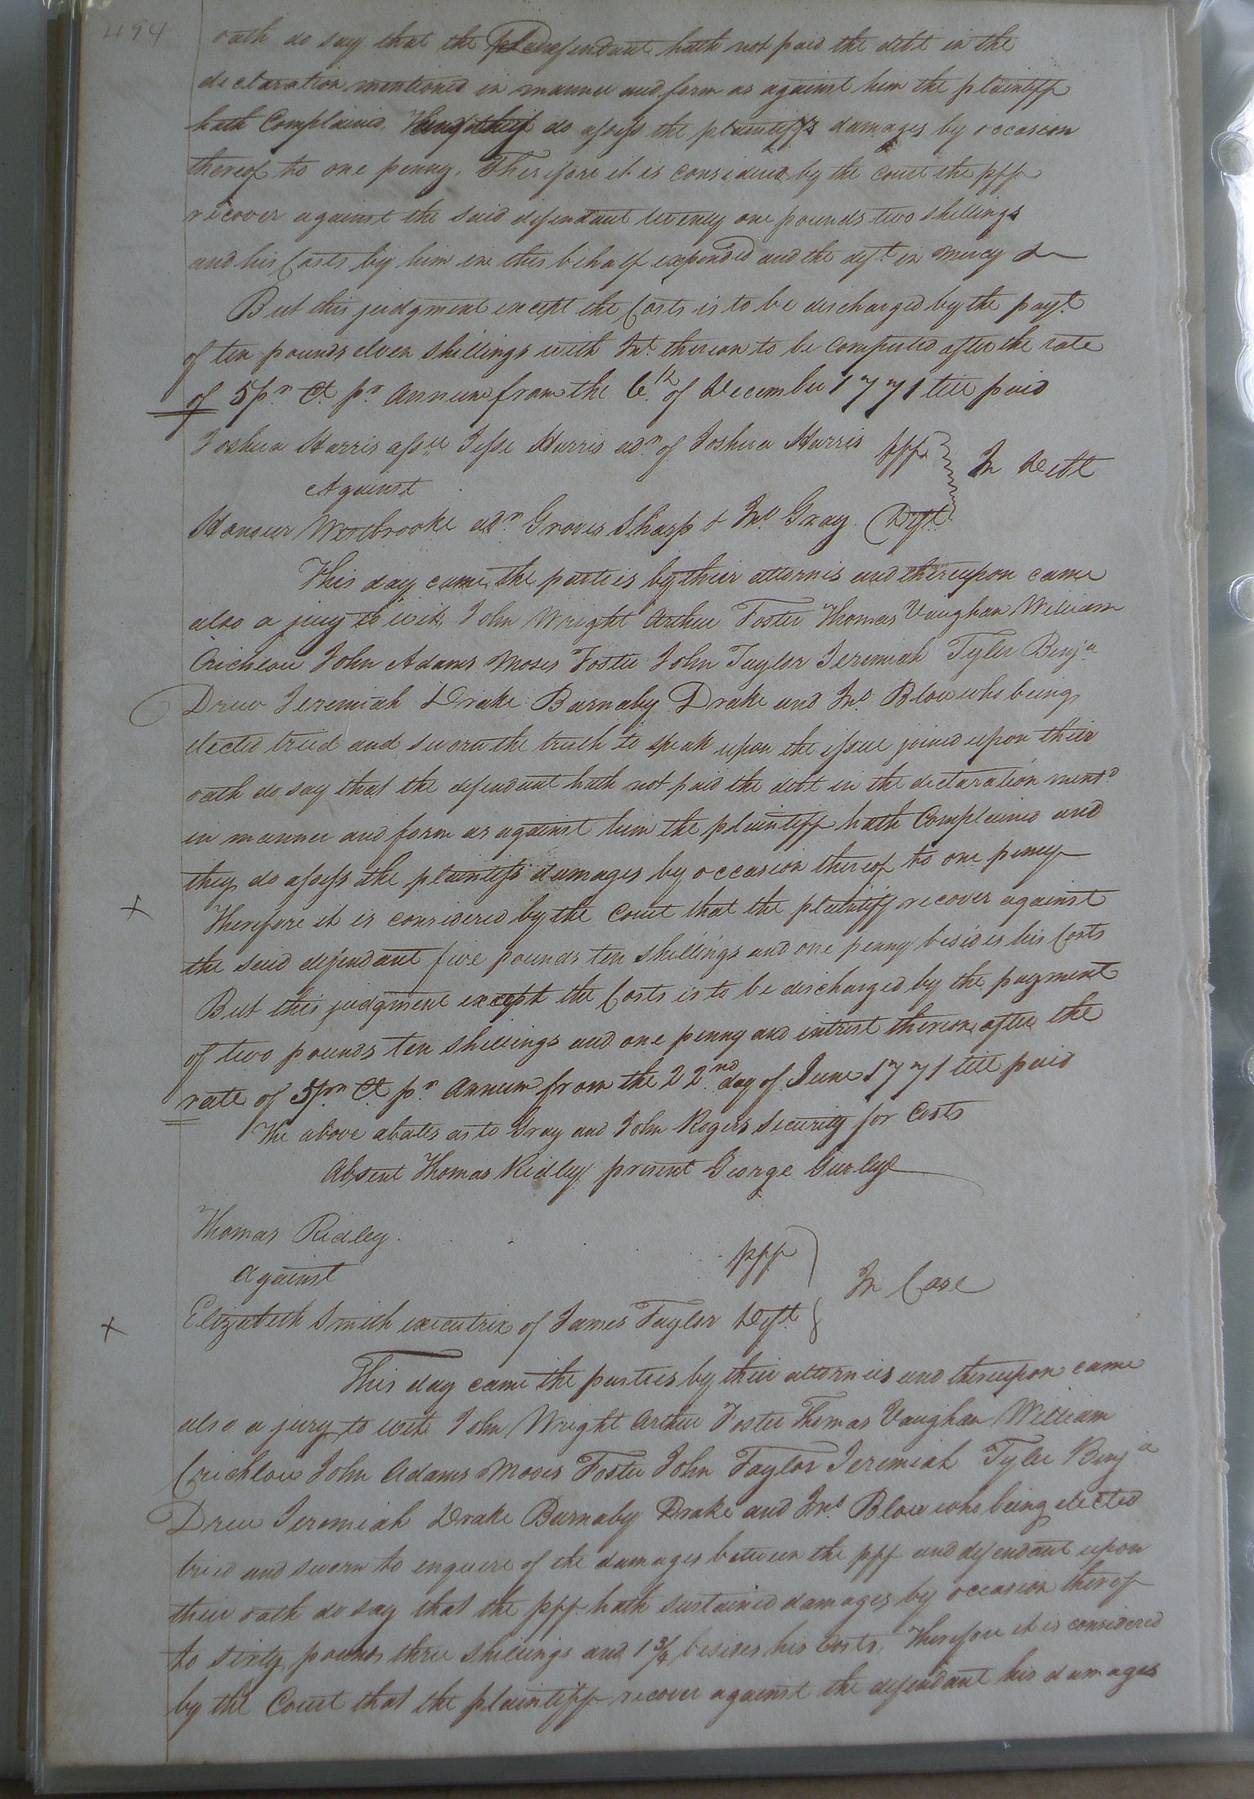 494
oath do say that the defendant hath not paid the debt in the
declaration mentioned in manner and form as against him the plaintiff
hath Complained. do assess the plaintiffs damages by occasion
thereof to one penny. Therefore it is considered by the court the pff
recover against the said defendant twenty one pounds two shillings
and his Costs by him in this behalf expended and the deft in mercy &
But this judgment except the Costs is to be discharged by the payt.
of ten pounds eleven shillings with Int. thereon to be computed after the rate
of 5 pr Ct pr Annum from the 6th of December 1771 till paid
Joshua Harris assee Jesse Harris adr of Joshua Harris pff
Against In Debt
Honour Westbrooke adr Groves Sharp & Jno Gray Deft
This day came the parties by their attornis and thereupon came
also a jury to wit John Wright Arthur Foster Thomas Vaughan William
Crichlow John Adams Moses Foster John Taylor Jeremiah Tyler Benja
Drew Jeremiah Drake Barnaby Drake and Jno Blow who being
elected tried and sworn the truth to speak upon the issue joined upon their
oath do say that the defendant hath not paid the debt in the declaration mentd
in manner and form as against him the plaintiff hath Complained and
they do assess the plaintiffs damages by occasion thereof to one penny
Therefore it is considered by the Court that the plaintiff recover against
the said defendant five pounds ten shillings and one penny besides his Costs
But this judgment except the Costs is to be discharged by the payment
of two pounds ten shillings and one penny and intrest thereon after the
rate of 5 pr Ct pr Annum from the 22nd day of June 1771 till paid
The above abates as to Gray and John Rogers Security for Costs
Absent Thomas Ridley present George Gurley
Thomas Ridley pff
Against In Case
Elizabeth Smith executrix of James Taylor Deft
This day came the parties by their attornies and thereupon came
also a jury to wit John Wright Arthur Foster Thomas Vaughan William
Crichlow John Adams Moses Foster John Taylor Jeremiah Tyler Benja
Drew Jeremiah Drake Barnaby Drake and Jno Blow who being elected
tried and sworn to enquire of the damages between the pff and defendant upon
their oath do say that the pff hath sustained damages by occasion thereof
to sixty pounds three shillings and 1 3/4 besides his Costs. Therefore it is considered
by the Court that the plaintiff recover against the defendant his damages